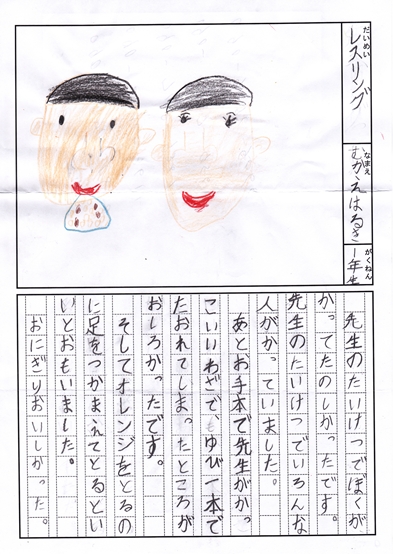 だいめい
レスリング
なまえ
むかえはるき
がくねん
1年生
先生のたいけつでぼくが
かってたのしかったです。
先生のたいけつでいろんな
人がかっていました。
あとお手本で先生がかっ
こいいわざで、もゆび一本で
たおれてしまったところが
おしろかったです。
そしてオレンジをとるの
に足をつかまえてとるとい
いとおもいました。
おにぎりおいしかった。